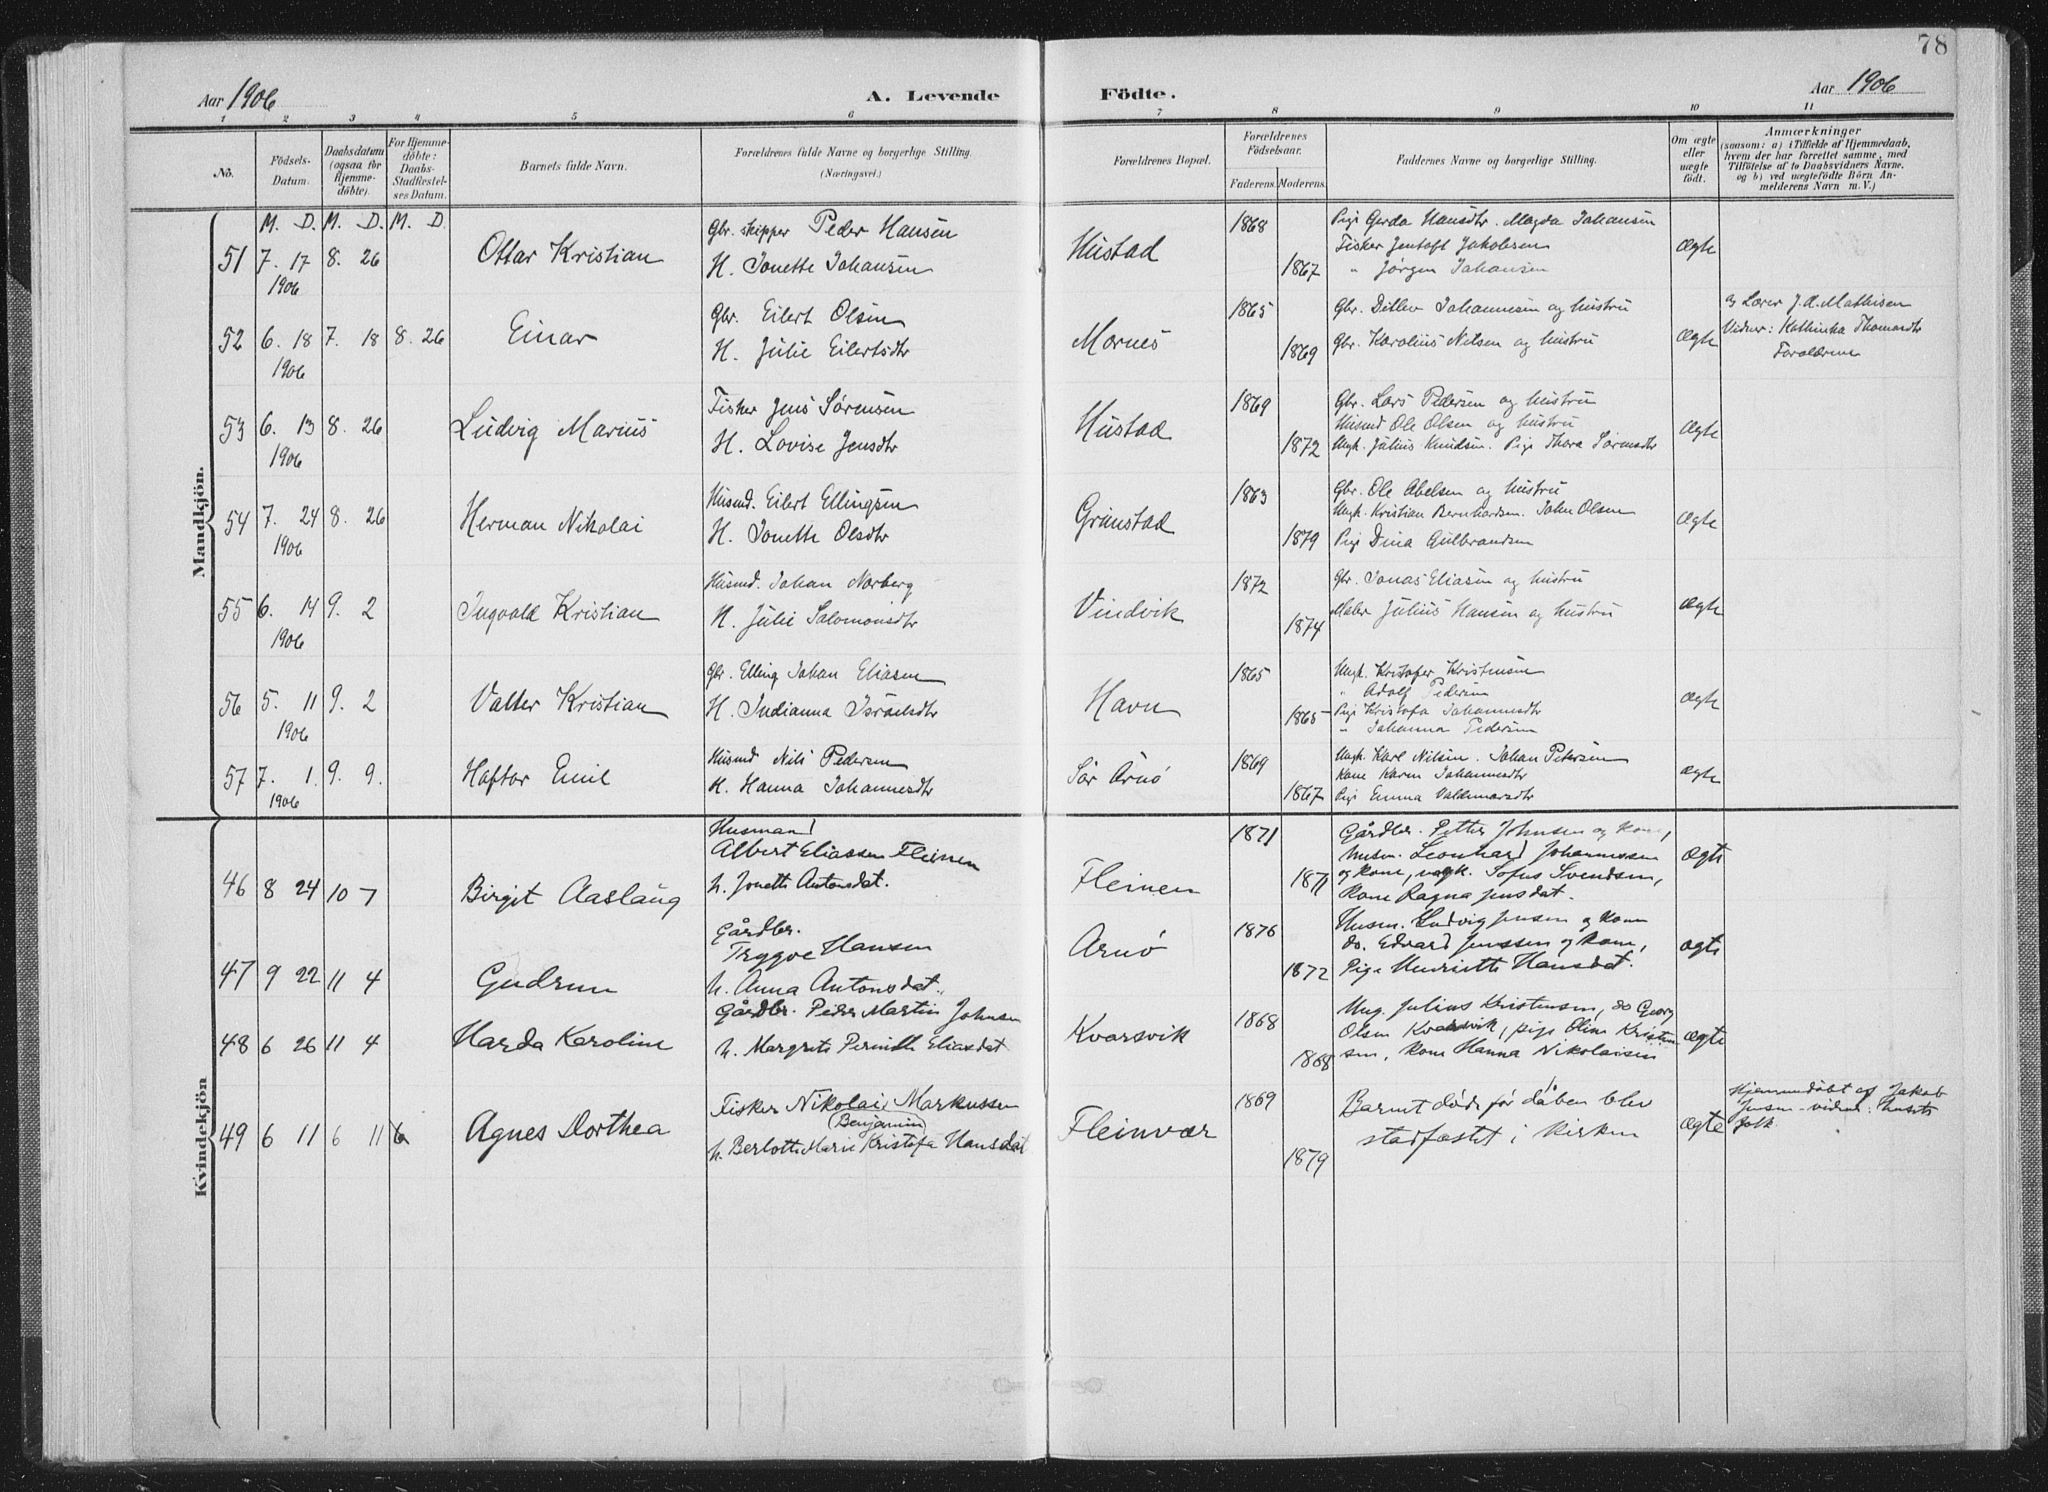 78
Aar 1906 A. Levende Födte. Aar 1906
1 2 3 4 5 6 7 8 9 10 11
No. Födsels-Datum. Daabsdatum (ogsaa for Hjemme-döbte). For Hjemme-döbte: Daabs-Stadfæstel-ses Datum. Barnets fulde Navn. Forældrenes fulde Navne og borgerlige Stilling. (Næringsvei.) Forældrenes Bopæl. Forældrenes Födselsaar. Faderens. Moderens. Faddernes Navne og borgerlige Stilling. Om ægte eller uægte födt. Anmærkninger
(saasom: a) i Tilfælde af Hjemmedaab,
hvem der har forrettet samme, med
Tilföielse af to Daabsvidners Navne.
og b) ved uægtefödte Börn An-
melderens Navn m. V.)
Mandkjön.
M. D. M. D. M. D.
Gbr. skipper Peder Hansen 1868 Pige Gerda Hansdtr. Magda Johansen
51 7. 17 8. 26 Ottar Kristian Hustad Fisker Jentoft Jakobsen Ægte
1906 H. Jonette Johansen 1867 " Jørgen Johansen
Gbr. Eilert Olsen 1865 Gbr. Ditlev Johannesen og hustru a) Lærer J. A. Mathisen
52 6. 18 7. 18 8. 26 Einar Mornes Ægte Vidner: Kathinka Thomasdtr
1906 H. Julie Eilertsdtr 1869 Gbr. Karolius Nilsen og hustru Forældrene
Fisker Jens Sørensen 1869 Gbr. Lars Pedersen og hustru
53 6. 13 8. 26 Ludvig Marius Hustad Husmd Ole Olsen og hustru Ægte
1906 H. Lovise Jensdtr 1872 Ungk. Julius Knudsen. Pige Thora Sørensdtr
Husmd. Eilert Ellingsen 1863 Gbr. Ole Abelsen og hustru
54 7. 24 8. 26 Herman Nikolai Grimstad Ungk. Kristian Bernhardsen. John Olsen Ægte
1906 H. Jonette Olsdtr 1879 Pige Dina Gulbrandsen
Husmd. Johan Norberg 1872 Gbr. Jonas Eliasen og hustru
55 6. 14 9. 2 Ingvald Kristian Vindvik Ægte
1906 H. Julie Salomonsdtr 1874 Maler Julius Hansen og hustru
Gbr. Elling Johan Eliasen 1865 Ungk. Kristofer Kristensen
56 5. 11 9. 2 Valter Kristian Havn " Adolf Pedersen Ægte
1906 H. Indianna Israelsdtr 1865 Pige Kristofa Johannesdtr
" Johanna Pedersen
Husmd Nils Pedersen 1869 Ungk. Karl Nilsen. Johan Petersen
57 7. 1. 9. 9. Haftor Emil Sør Arnø Kone Karen Johannesdtr ægte
1906 H. Hanna Johannesdtr 1867 Pige Emma Valdemarsdtr
Kvindekjön
Husmand 1871 Gårdbr. Petter Johnsen og kone,
Albert Eliassen Fleinen husm. Leonhard Johannessen ægte
46 8 24 10 7 Birgit Aaslaug h. Jonette Antonsdat. Fleinen 1871 og kone, ungk. Sofus Svendsen,
kone Ragna Jensdat.
Gårdbr. 1876 Husm. Ludvig Jensen og kone
Trygve Hansen Arnø do. Edvard Jenssen og kone, ægte
47 9 22 11 4 Gudrun h. Anna Antonsdat. 1872 Pige Henriette Hansdat.
Gårdbr. Peder Martin Johnsen 1868 Ung. Julius Kristensen, do Georg
48 6 26 11 4 Harda Karoline Kvarsvik Olsen Kvarsvik, pige Oline Kristen- ægte
h. Margrete Pernille Eliasdat 1868 sen, kone Hanna Nikolaisen
Fisker Nikolai Markussen 1869 Barnet døde før dåben blev Hjemmedøbt af Jakob
(Benjamin) Jensen - vidner: husets
49 6 11 6 11 6 Agnes Dorthea Fleinvær stadfæstet i kirken ægte folk.
h. Berlotte Marie Kristofa Hansdat 1879